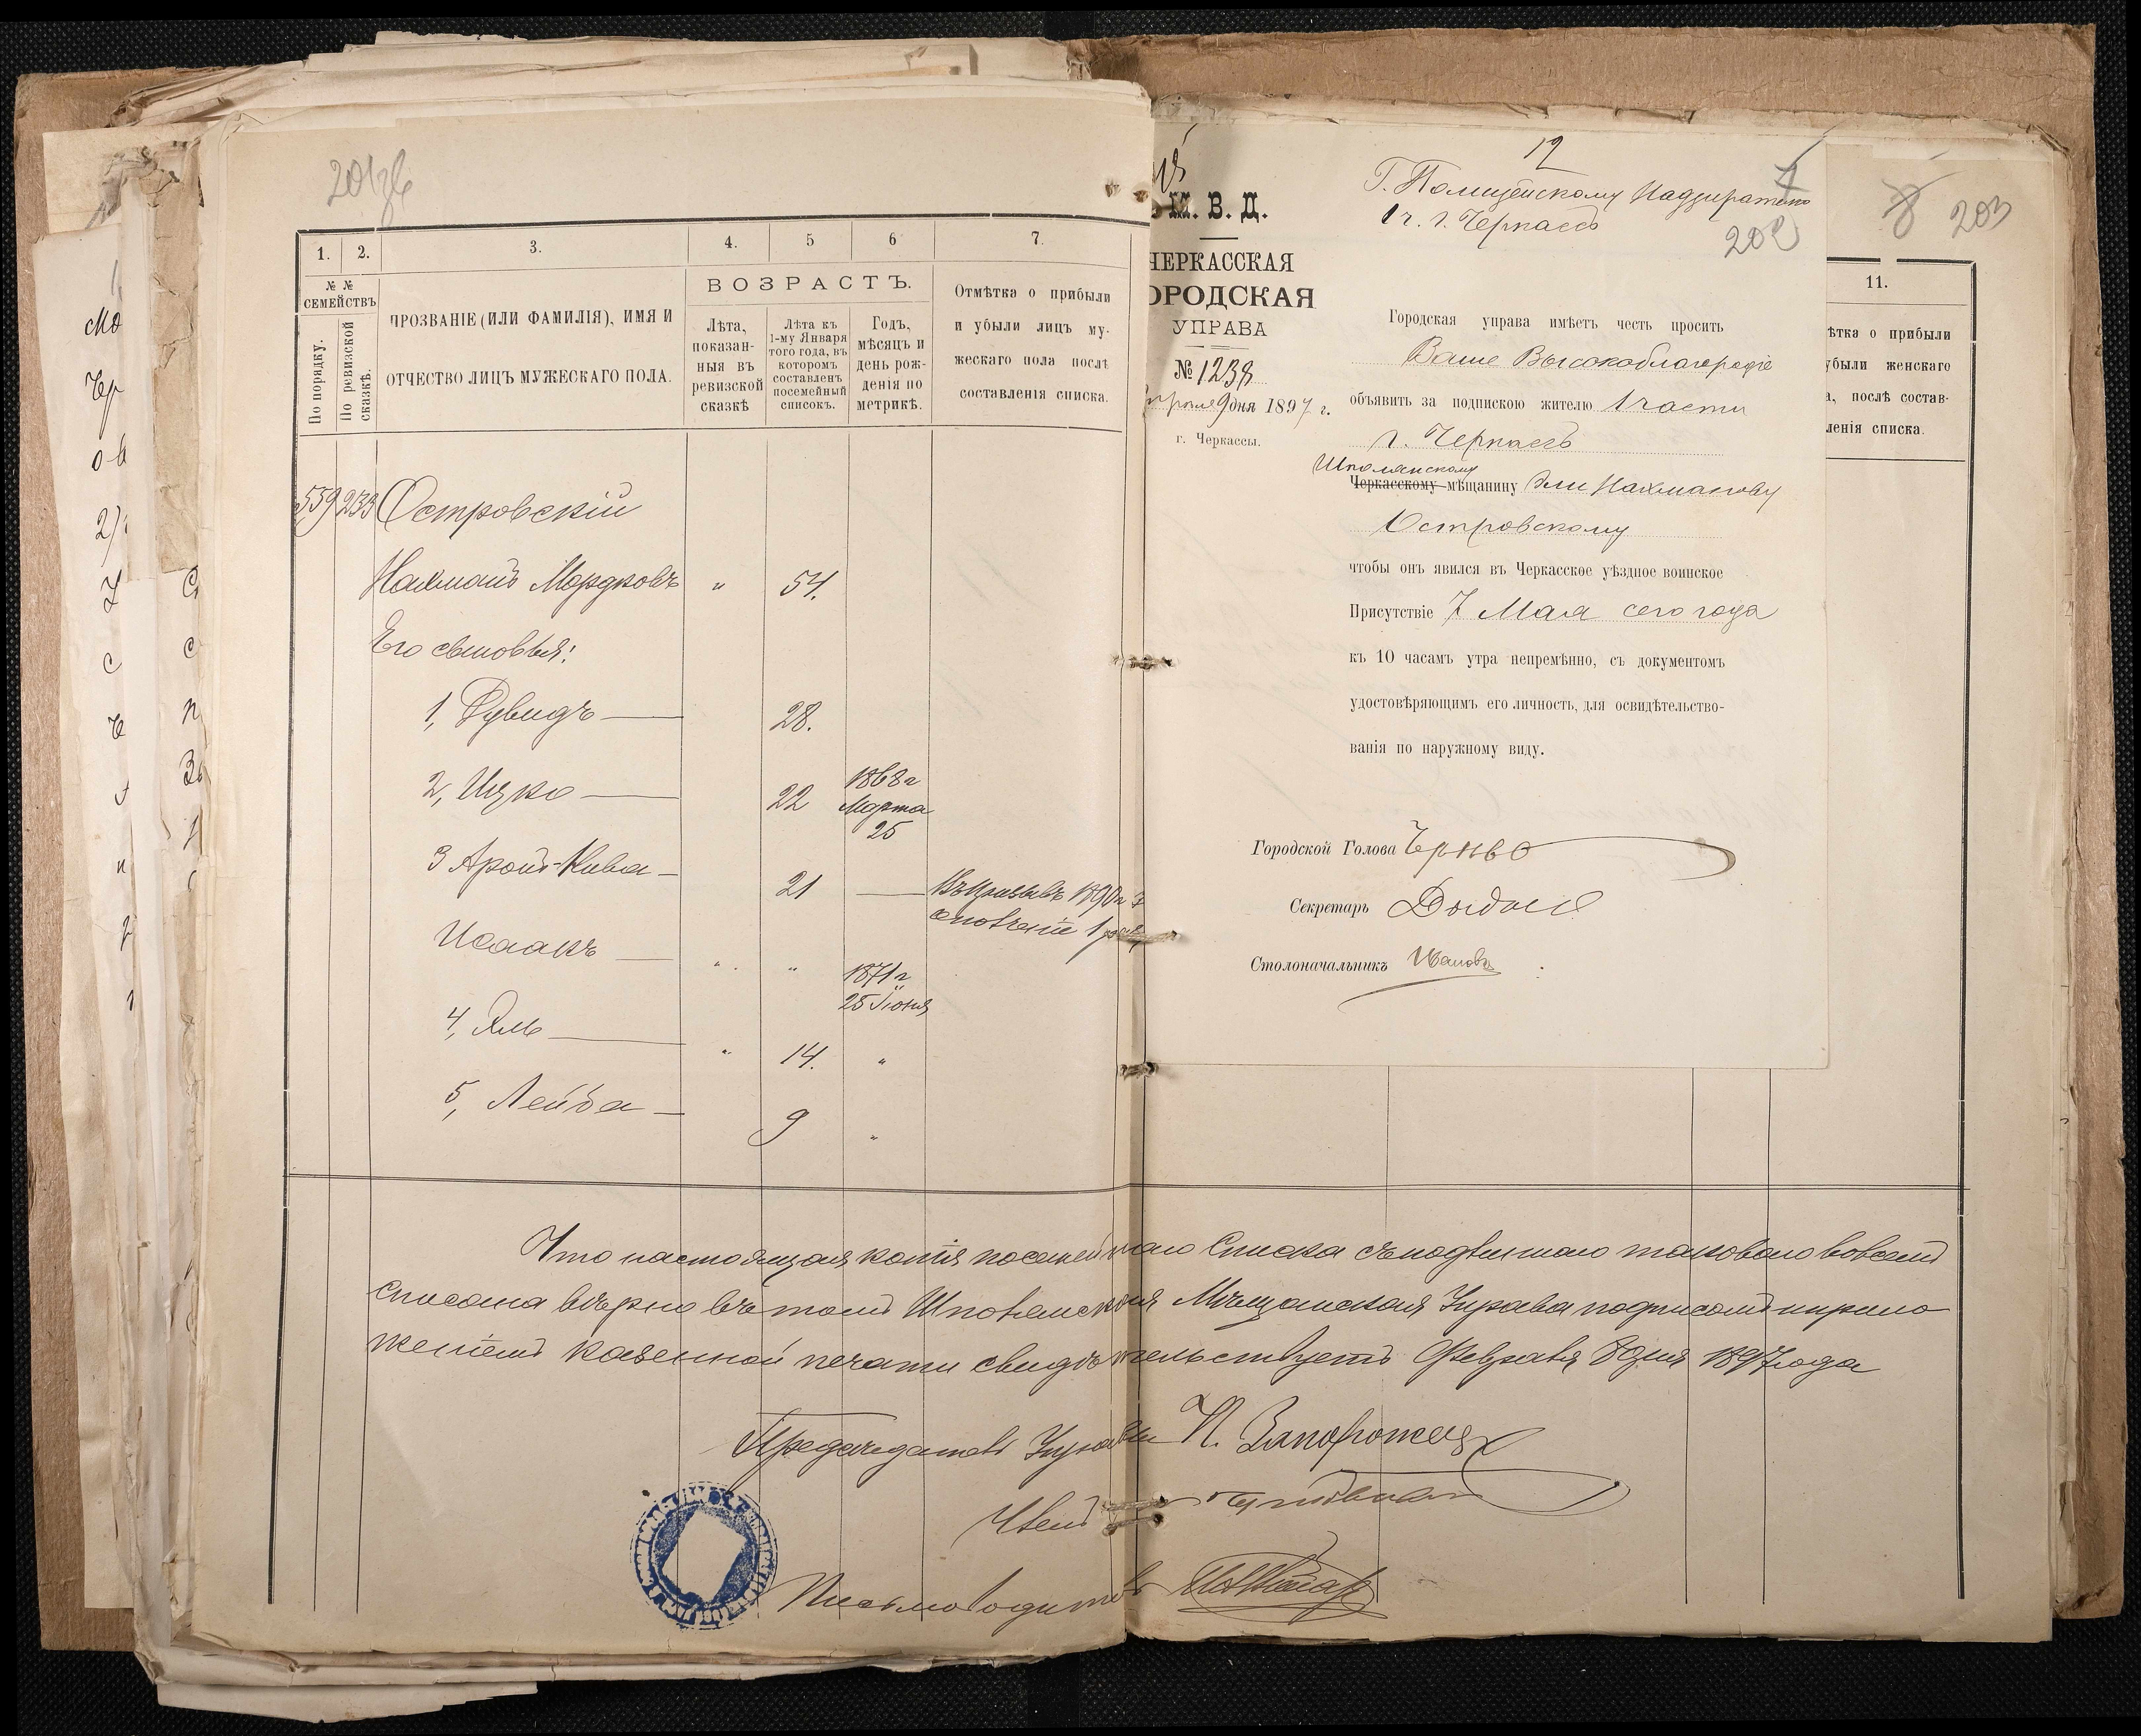 1.
2.
3.
4.
5
6
7.
№ №
СЕМЕЙСТВЪ
По порядку.
По ревизской
сказкѣ.
ПРОЗВАНІЕ (ИЛИ ФАМИЛІЯ), ИМЯ И
ОТЧЕСТВО ЛИЦЪ МУЖЕСКАГО ПОЛА.
ВОЗРАСТЪ.
Лѣта,
показан-
ныя въ
ревизской
сказкѣ
Лѣта къ
1-му Января
того года, въ
которомъ
составленъ
посемейный
списокъ.
Годъ,
мѣсяцъ и
день рож-
денія по
метрикѣ.
Отмѣтка о прибыли
и убыли лицъ му-
жескаго пола послѣ
составленія списка.
559 233 Островскій
Нахманъ Мордковъ " 54.
Его сыновья:
1, Рувидъ 28.
2, Ицко 22 1868 г
Марта
25
3 Аронъ-Кива 21 Въ призывѣ 1890 г
Исаакъ " " 1871 г
25 Іюня
4, Эль " 14. "
5, Лейба 9 "
М. В. Д.
ЧЕРКАССКАЯ
ГОРОДСКАЯ
УПРАВА
№ 1238
Апрѣля 9 дня 1897 г.
г. Черкассы.
12
Г. Полицейскому Надзирателю
1 ч. г. Черкассъ
202
Городская управа имѣетъ честь просить
Ваше Высокоблагородіе
объявить за подпискою жителю 1 части
г. Черкассъ
Шполянскому
Черкасскому мѣщанину Эли Нахманову
Островскому
чтобы онъ явился въ Черкасское уѣздное воинское
Присутствіе 7 Мая сего года
къ 10 часамъ утра непремѣнно, съ документомъ
удостовѣряющимъ его личность, для освидѣтельство-
ванія по наружному виду.
Городской Голова
Секретарь
Столоначальникъ Ивановъ
8 203
11.
ѣтка о прибыли
убыли женскаго
а, послѣ состав-
ленія списка.
Что настоящая копія посемейнаго Списка съ подлиннаго таковаго во всемъ
списана вѣрно въ томъ Шполянская Мѣщанская Управа подписомъ и прило
женіемъ казенной печати свидѣтельствуетъ Февраля 8 дня 1897 года
Предсѣдатель Управы П. Запорожецъ
Членъ
Письмоводитель